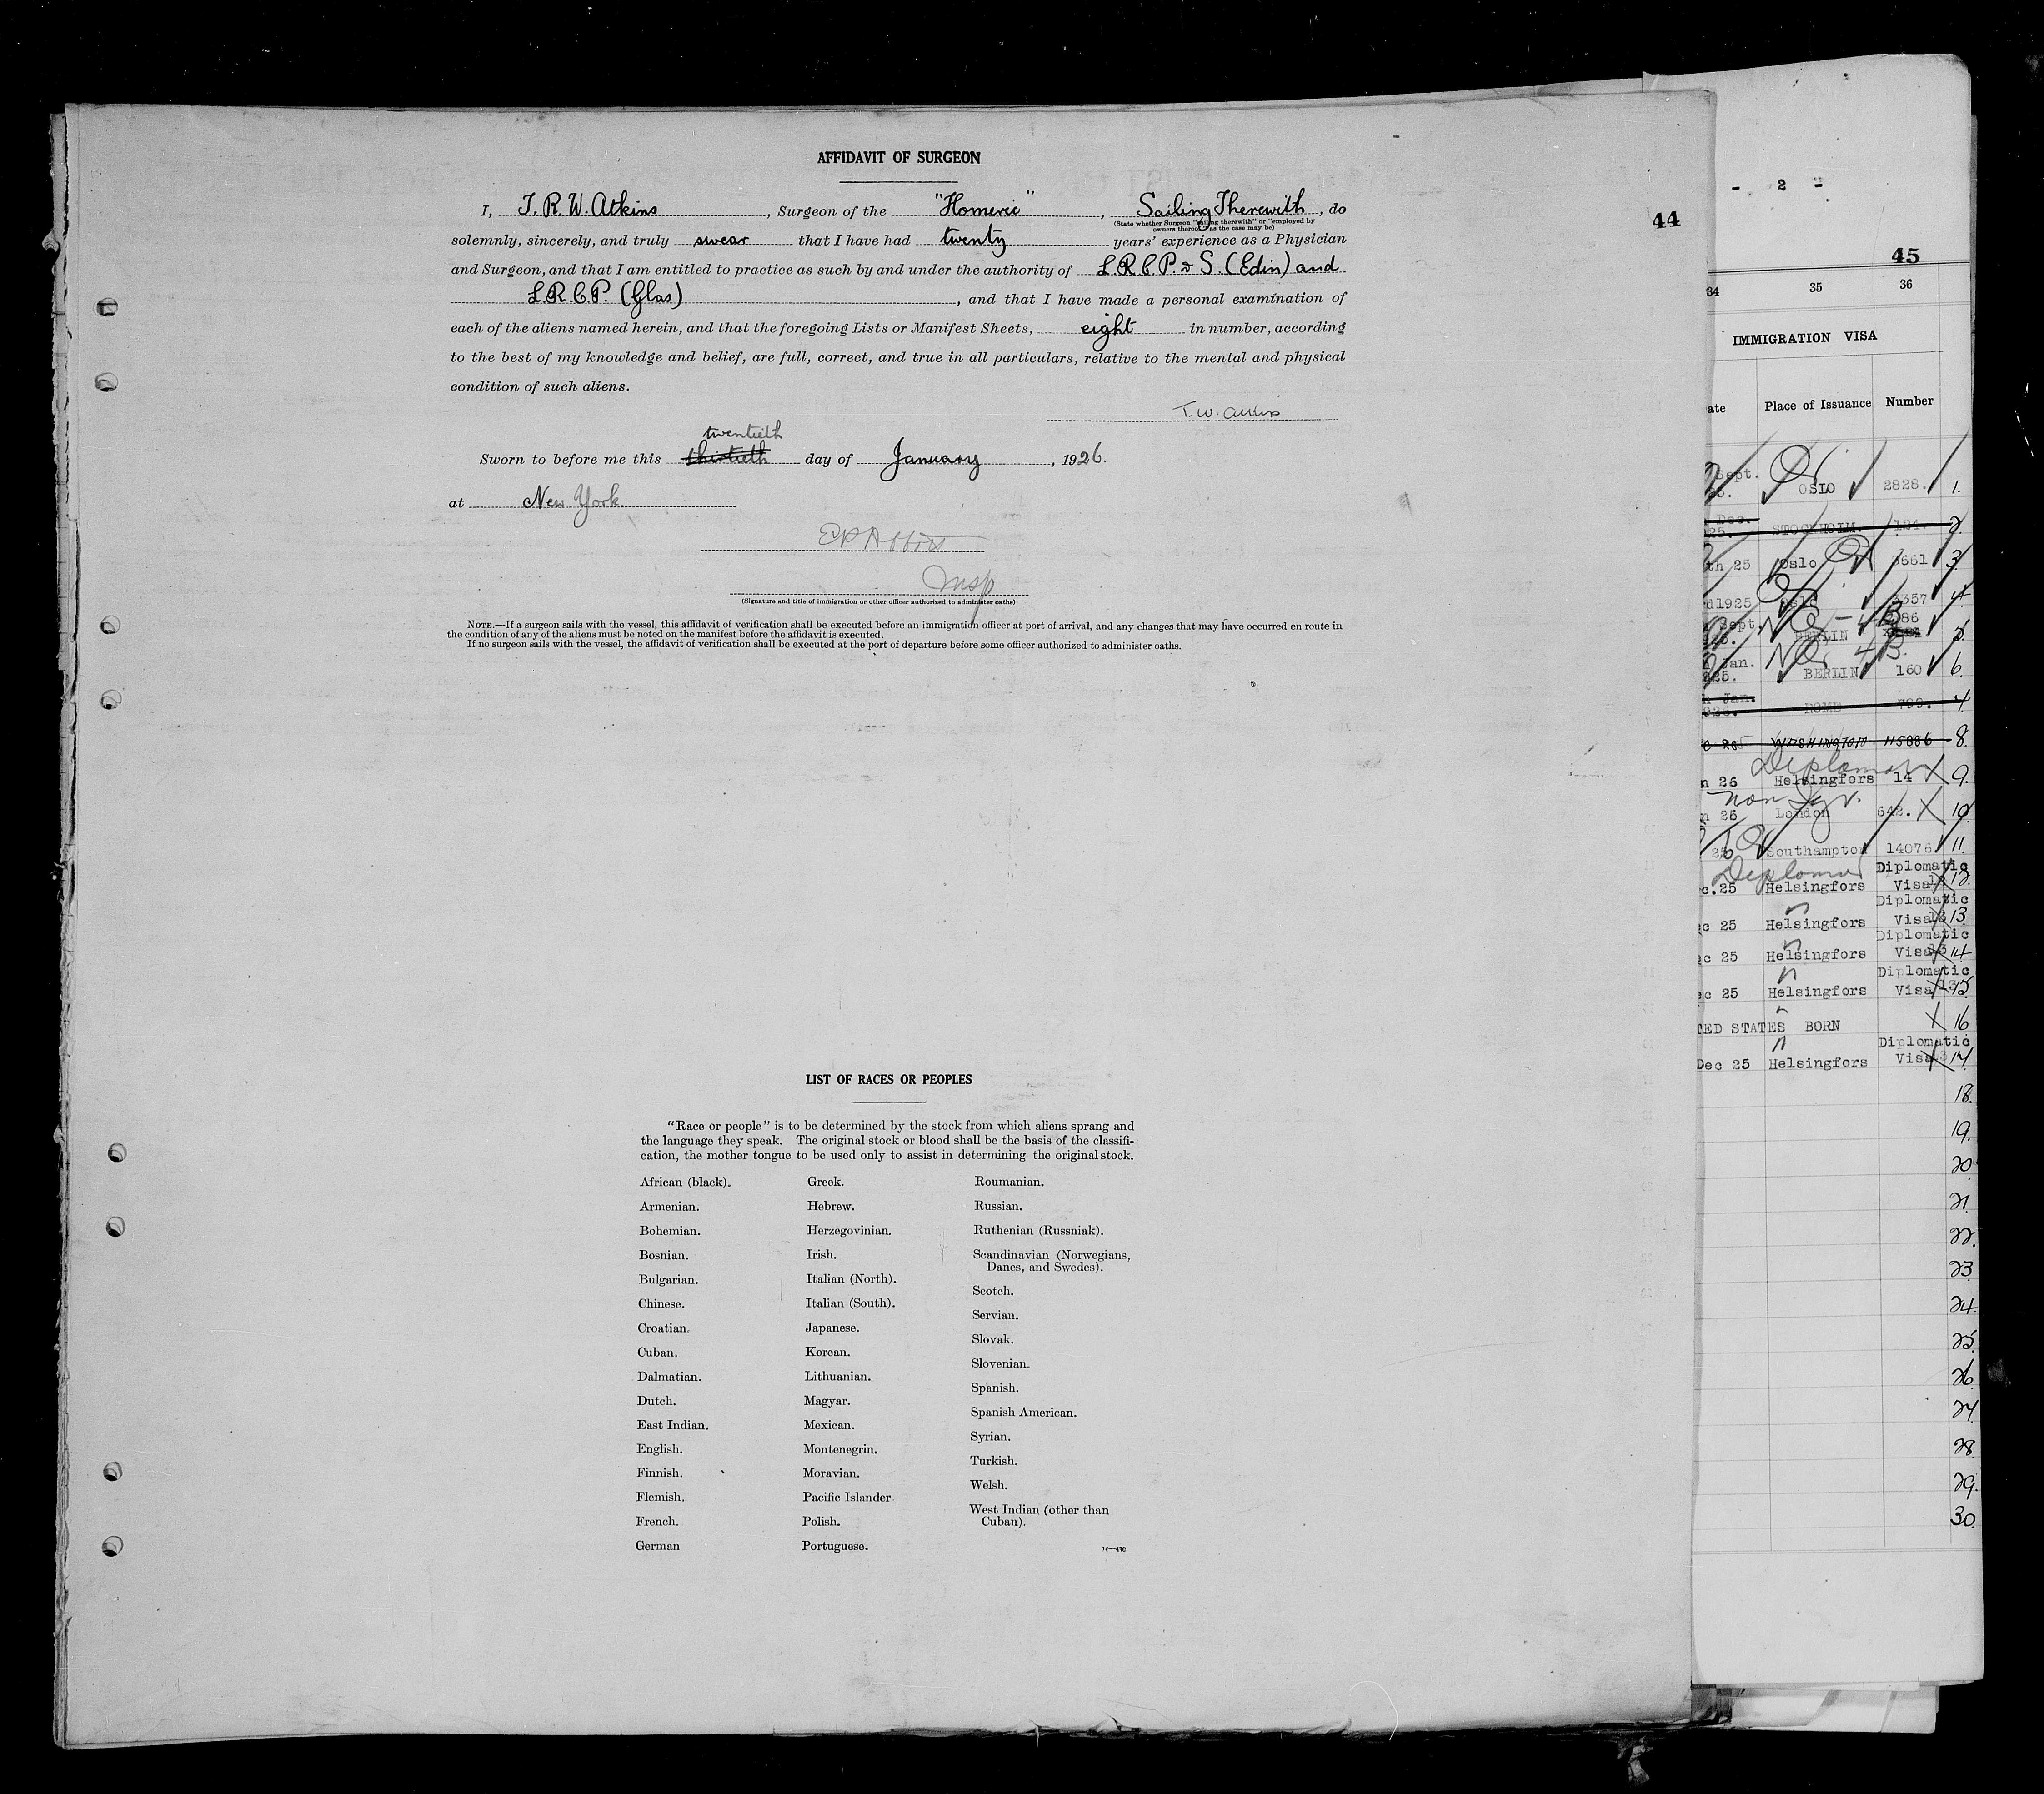 AFFIDAVIT OF SURGEON
I, T. R. W. Atkins, Surgeon of the "Homeric", Sailing Therewith, do
(State whether Surgeon "sailing therewith" or "employed by
owners thereof" as the case may be)
solemnly, sincerely, and truly swear that I have had twenty years' experience as a Physician
and Surgeon, and that I am entitled to practice as such by and under the authority of L.R.C.P. & S. (Edin) and
L.R.C.P. (Glas), and that I have made a personal examination of
each of the aliens named herein, and that the foregoing Lists or Manifest Sheets, eight in number, according
to the best of my knowledge and belief, are full, correct, and true in all particulars, relative to the mental and physical
condition of such aliens.
T.W. Atkins
twentieth
Sworn to before me this thirtieth day of January, 1926.
at New York.
Insp
(Signature and title of immigration or other officer authorized to administer oaths)
NOTE.—If a surgeon sails with the vessel, this affidavit of verification shall be executed before an immigration officer at port of arrival, and any changes that may have occurred en route in
the condition of any of the aliens must be noted on the manifest before the affidavit is executed.
If no surgeon sails with the vessel, the affidavit of verification shall be executed at the port of departure before some officer authorized to administer oaths.
LIST OF RACES OR PEOPLES
"Race or people" is to be determined by the stock from which aliens sprang and
the language they speak. The original stock or blood shall be the basis of the classifi-
cation, the mother tongue to be used only to assist in determining the original stock.
African (black).
Armenian.
Bohemian.
Bosnian.
Bulgarian.
Chinese.
Croatian.
Cuban.
Dalmatian.
Dutch.
East Indian.
English.
Finnish.
Flemish.
French.
German
Greek.
Hebrew.
Herzegovinian.
Irish.
Italian (North).
Italian (South).
Japanese.
Korean.
Lithuanian.
Magyar.
Mexican.
Montenegrin.
Moravian.
Pacific Islander
Polish.
Portuguese.
Roumanian.
Russian.
Ruthenian (Russniak).
Scandinavian (Norwegians,
Danes, and Swedes).
Scotch.
Servian.
Slovak.
Slovenian.
Spanish.
Spanish American.
Syrian.
Turkish.
Welsh.
West Indian (other than
Cuban).
44
- 2 -
45
34 35 36
IMMIGRATION VISA
ate Place of Issuance Number
Sept. OSLO 2828. 1.
Dec. 25. STOCKHOLM. 2.
th 25 Oslo 3661 3
d1925 Oslo 3357 4.
Sept. BERLIN 5.
Jan. 25. BERLIN 160 6.
Jan. ROME 799. 7.
WASHINGTON 115886 8.
Diplomat
n 26 Helsingfors 14 9.
non Igr.
n 26 London 642. 10.
26 Southampton 14076 11.
Diplomat
Diplomatic
c.25 Helsingfors Visa 12.
Diplomatic
c 25 Helsingfors Visa 13.
Diplomatic
c 25 Helsingfors Visa 14
Diplomatic
c 25 Helsingfors Visa 15.
TED STATES BORN 16
Diplomatic
Dec 25 Helsingfors Visa 17.
18.
19.
20.
21.
22.
23
24.
25.
26.
27.
28.
29.
30.